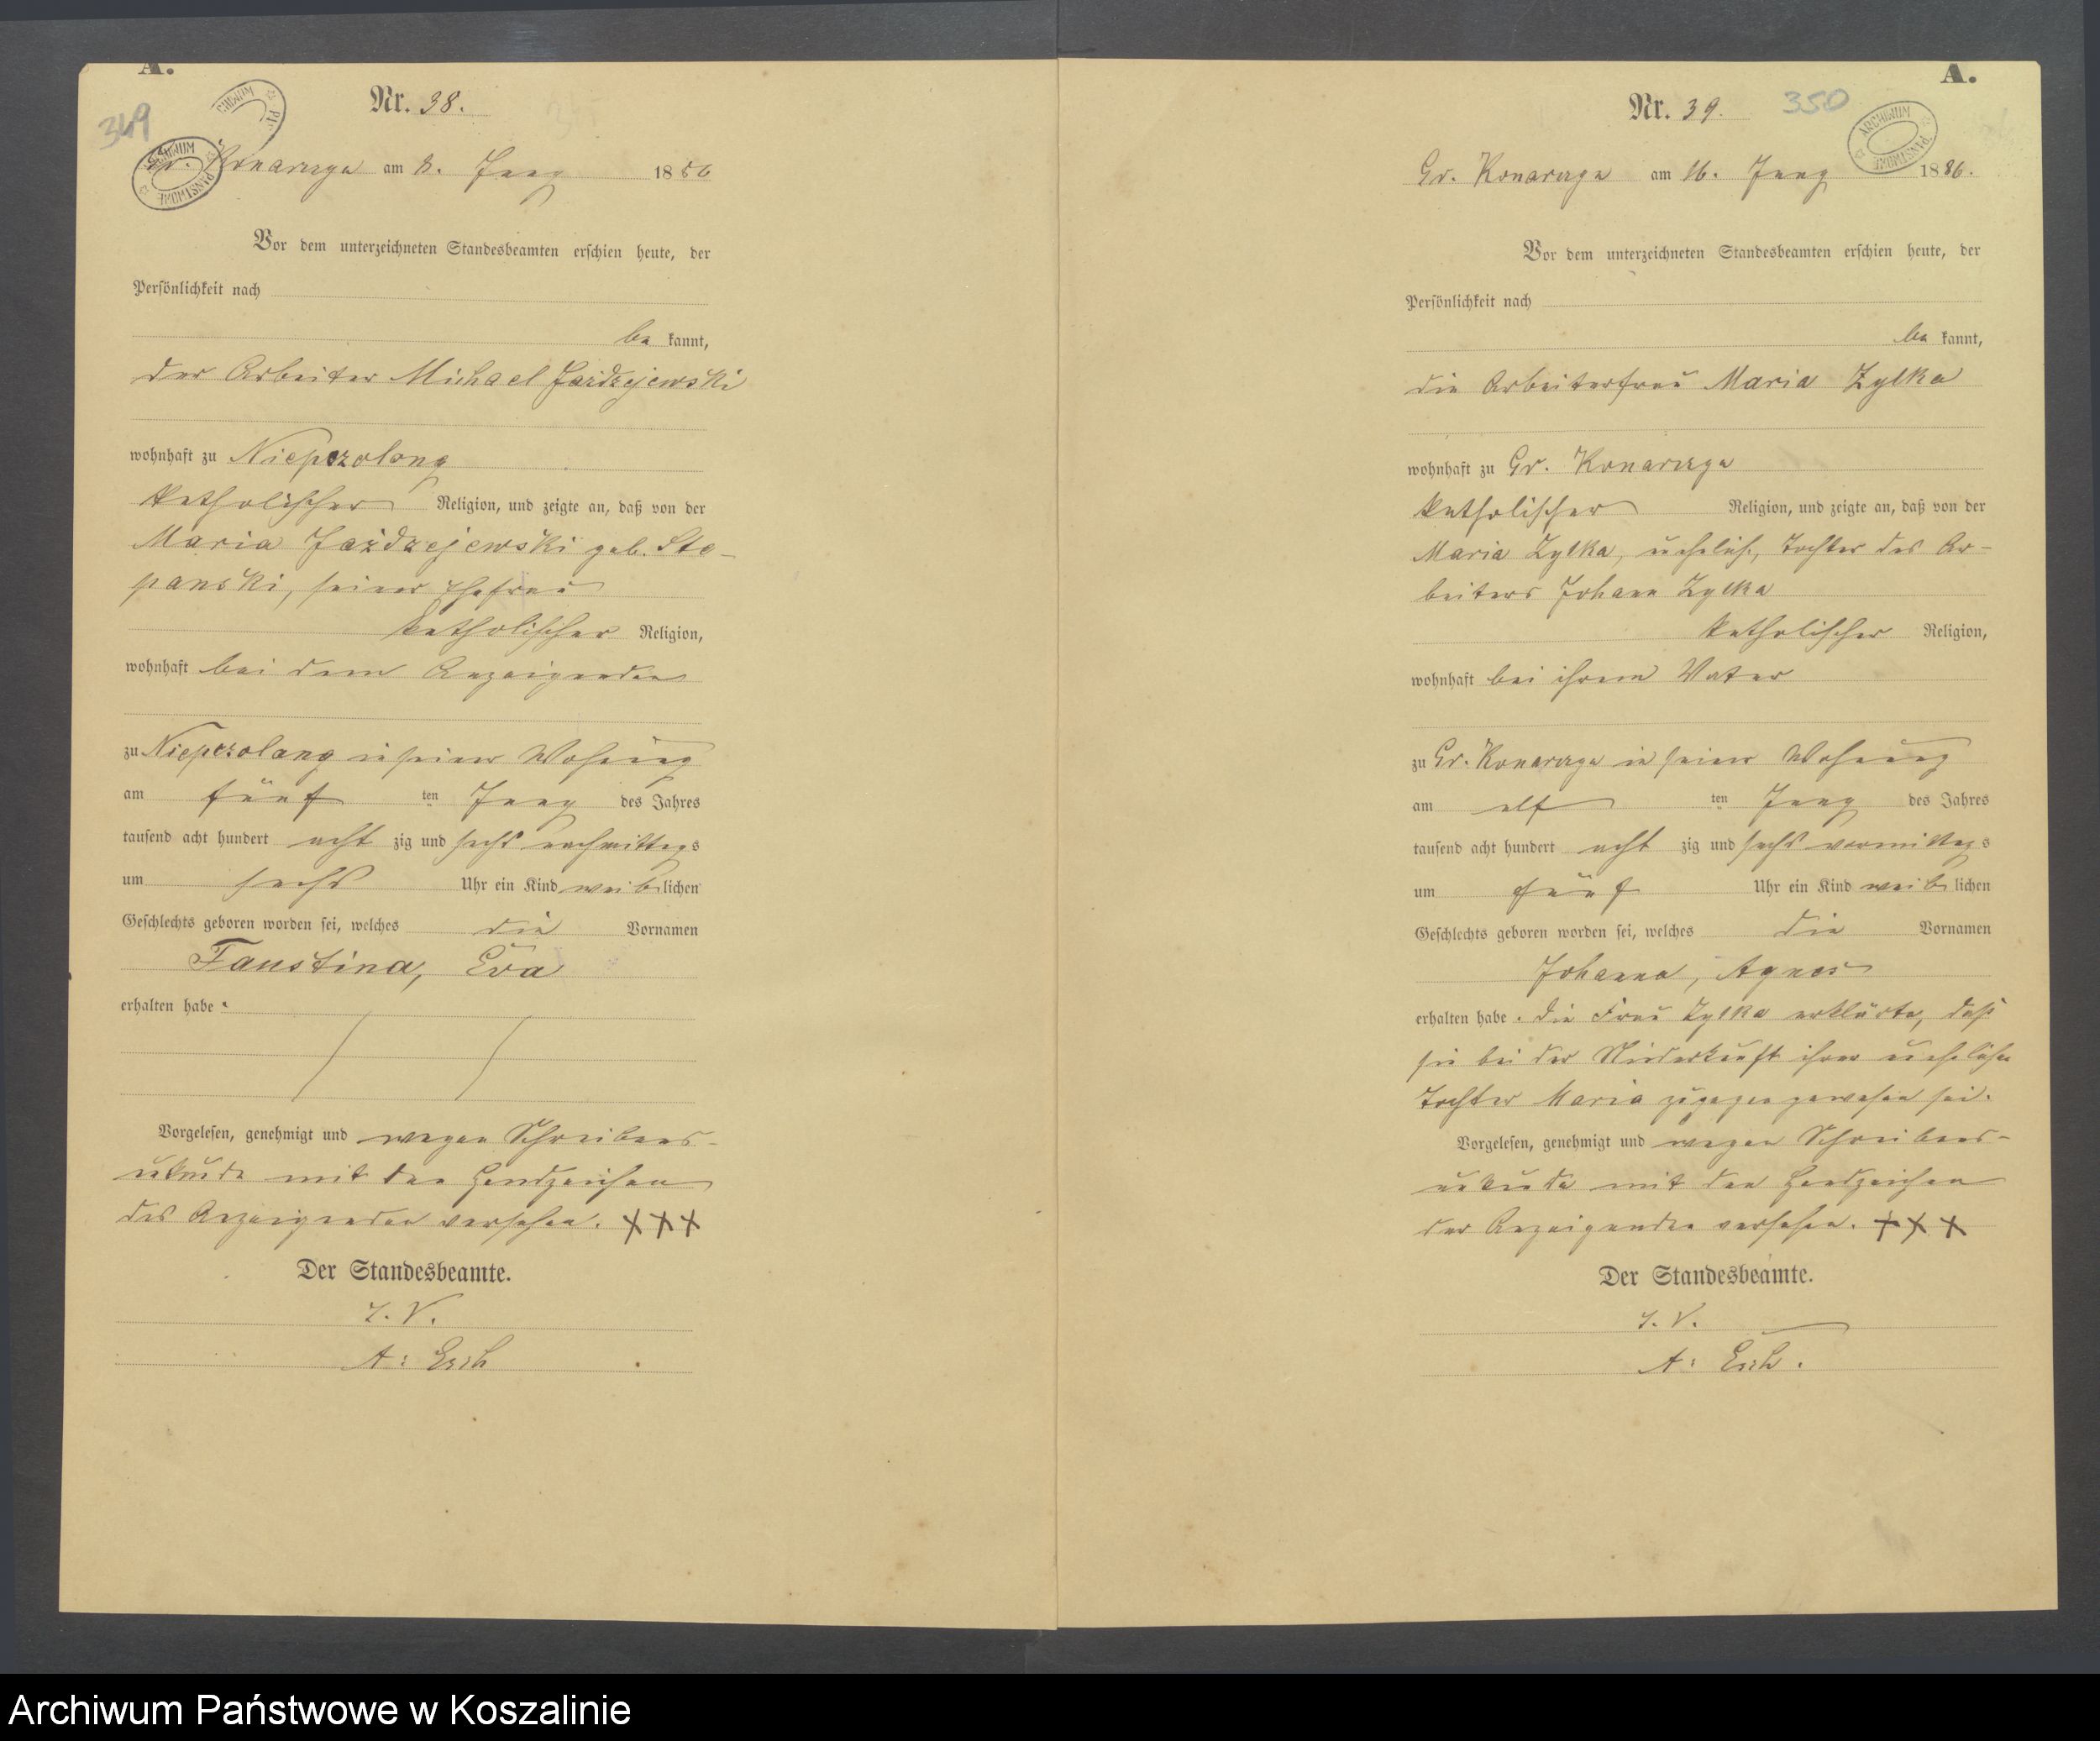 A.
349
Nr. 38.
Gr. Konarczyn am 8. Juny 1886
Vor dem unterzeichneten Standesbeamten erschien heute, der
Persönlichkeit nach
be kannt,
der Arbeiter Michael Jazdzejewski
wohnhaft zu Niepszolong
katholischer Religion, und zeigte an, daß von der
Maria Jażdzejewski geb. Ste-
panski, seiner Ehefrau
katholischer Religion,
wohnhaft bei dem Anzeigenden
zu Niepszolong in seiner Wohnung
am fünf ten Juny des Jahres
tausend acht hundert acht zig und sechs nachmittags
um sechs Uhr ein Kind weib lichen
Geschlechts geboren worden sei, welches die Vornamen
Faustina, Eva
erhalten habe.
Vorgelesen, genehmigt und wegen Schreibens-
unkunde mit den Handzeichen
des Anzeigenden versehen. XXX
Der Standesbeamte.
I. V.
A.
350
Nr. 39.
ARCHIWUM PAŃSTWOWE
Gr. Konarczyn am 16. Juny 1886.
Vor dem unterzeichneten Standesbeamten erschien heute, der
Persönlichkeit nach
be kannt,
die Arbeiterfrau Maria Zylka
wohnhaft zu Gr. Konarczyn
katholischer Religion, und zeigte an, daß von der
Maria Zylka, unehelich, Tochter des Ar-
beiters Johann Zylka
katholischer Religion,
wohnhaft bei ihrem Vater
zu Gr. Konarczyn in seiner Wohnung
am elf ten Juny des Jahres
tausend acht hundert acht zig und sechs vormittags
um fünf Uhr ein Kind weib lichen
Geschlechts geboren worden sei, welches die Vornamen
Johanna, Agnes
erhalten habe. Die Frau Zylka erklärte, daß
sie bei der Niederkunft ihrer unehelichen
Tochter Maria zugegen gewesen sei.
Vorgelesen, genehmigt und wegen Schreibens-
unkunde mit den Handzeichen
der Anzeigenden versehen. XXX
Der Standesbeamte.
I. V.
Archiwum Państwowe w Koszalinie